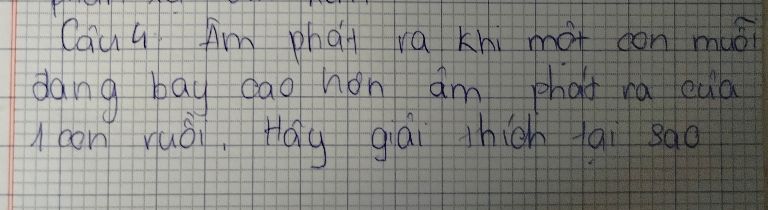 Câu 4. Âm phát ra khi một con muỗi
đang bay cao hơn âm phát ra của
1 con ruồi. Hãy giải thích tại sao